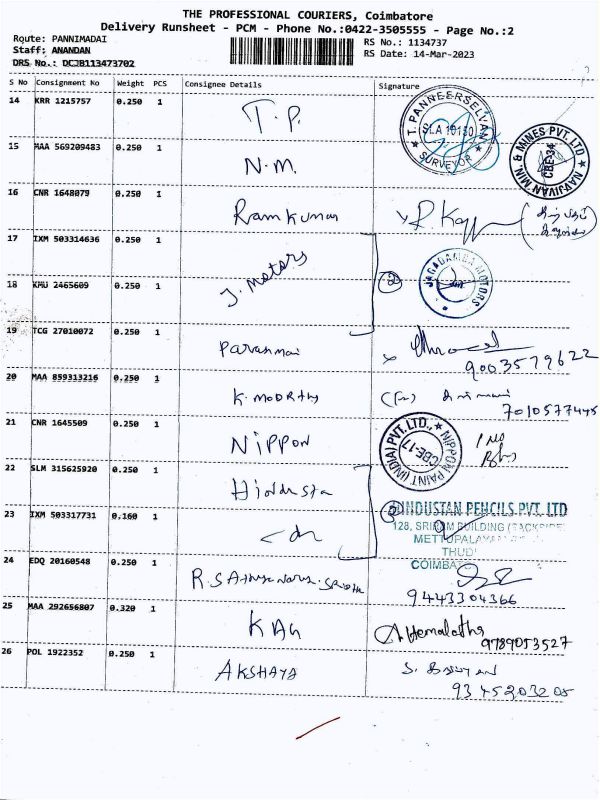 THE PROFESSIONAL COURIERS, Coimbatore
Delivery Runsheet - PCM - Phone No.:0422-3505555 - Page No.:2
Route: PANNIMADAI
RS No.: 1134737
Staff: ANANDAN
RS Date: 14-Mar-2023
DRS No.: DCJB113473702
S No Consignment No Weight PCS Consignee Details Signature
14 KRR 1215757 0.250 1 T.P.
T. PANNEERSELVAN
SLA 10130
SURVEYOR
15 MAA 569209483 0.250 1 N.M.
NAVJIVAN MIN. & MINES PVT. LTD
CBE-34
16 CNR 1648079 0.250 1 Ramkumar
17 IXM 503314636 0.250 1
18 KMU 2465609 0.250 1 J. Motors
2
JAGADAMBA MOTORS
19 TCG 27010072 0.250 1
9003579622
20 MAA 859313216 0.250 1 K. MOORTHY
7010577445
21 CNR 1645509 0.250 1 NIPPON
NIPPON PAINT (INDIA) PVT. LTD.,
CBE-17
22 SLM 315625920 0.250 1 Hindusta
HINDUSTAN PENCILS PVT. LTD
23 IXM 503317731 0.160 1
128, SRIRAM BUILDING
METTUPALAYAM
THUDI
COIMBATO
24 EDQ 20160548 0.250 1
9443304366
25 MAA 292656807 0.320 1 KAG
Hemalatha
9789053527
26 POL 1922352 0.250 1 AKSHAYA
9345203205